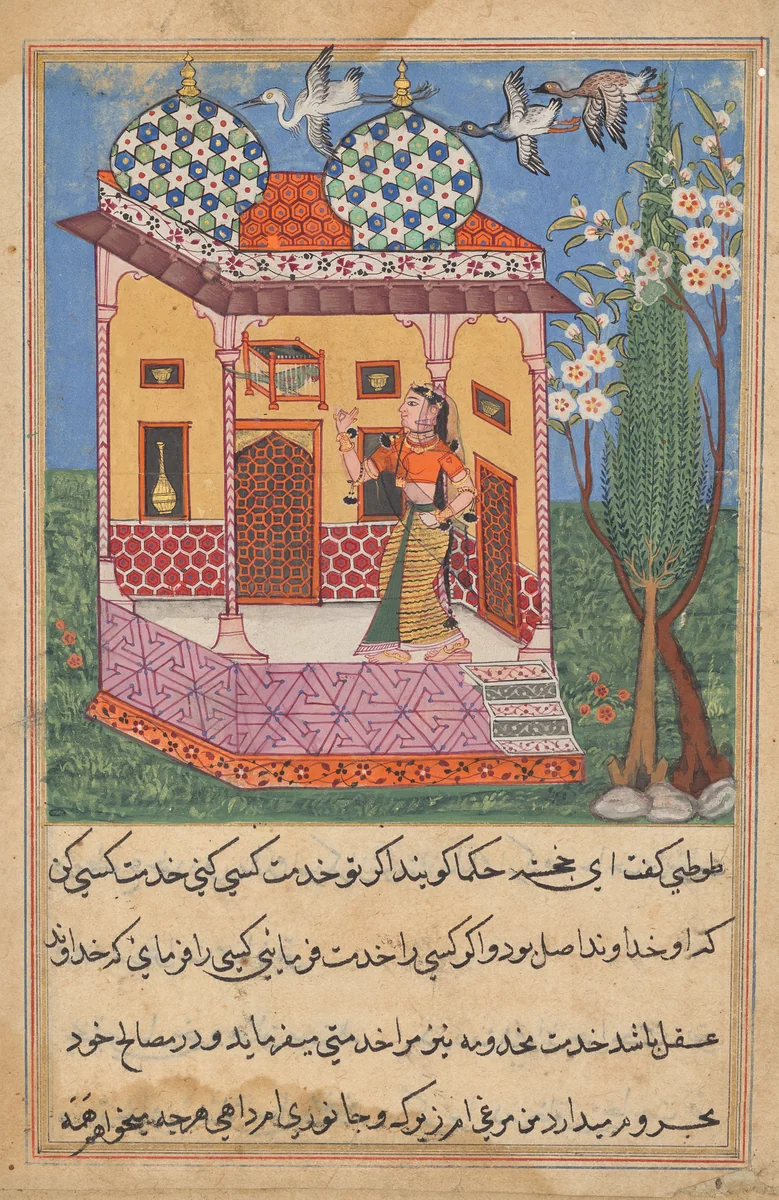 طوطی گفت ای خجسته حکما گویند اگر تو خدمت کسی کنی خدمت کسی کن
که او خداوند اصل بود و اگر کسی را خدمت فرمائی کسی را فرمای که خداوند
عقل باشد خدمت مخدومه نیز مرا خدمتی میفرماید و در مصالح خود
محروم میدارد من مرغی ام زیرک و جانوری ام داهی هرچه میخواهم همه